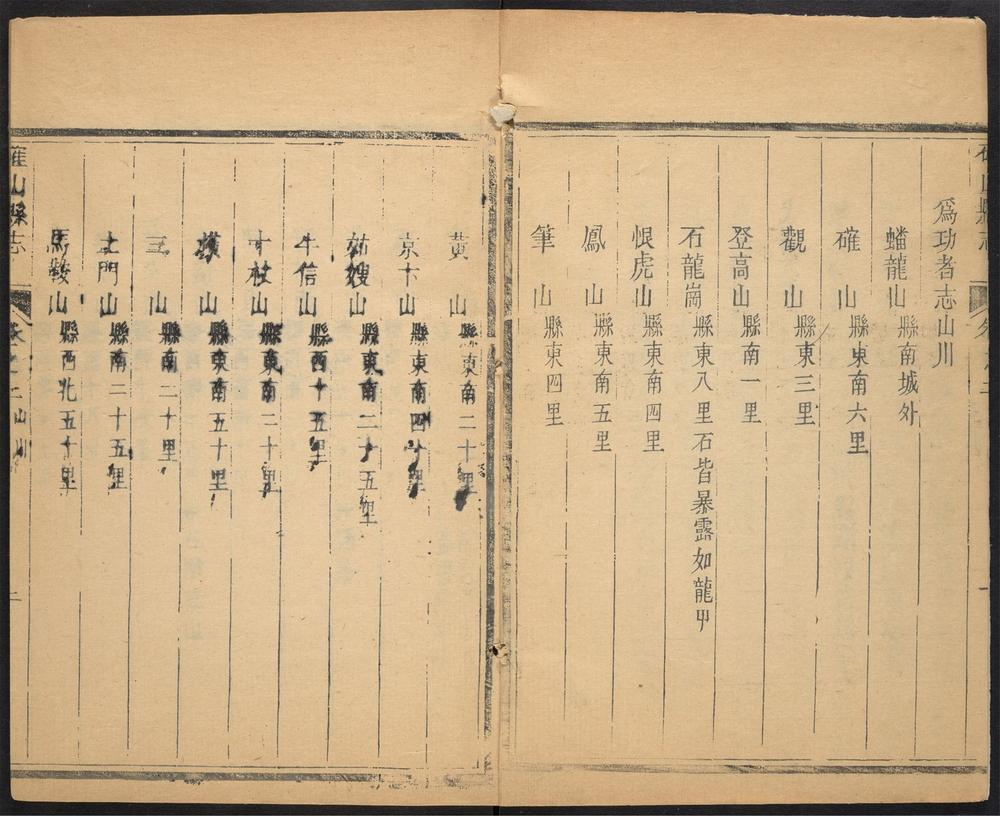 為功者志山川
蟠龍山縣南城外
確山縣東南六里
觀山縣東三里
登高山縣南一里
石龍崗縣東八里石皆暴露如龍甲
恨虎山縣東南四里
鳳山縣東南五里
筆山縣東四里
黃山縣東南二十里
山縣東南四十里
姑嫂山縣東南二十五里
山縣西十五里
山縣東南二十里
山縣東南五十里
三山縣南二十里
土門山縣南二十五里
馬鞍山縣西北五十里
確山縣志 山川 二